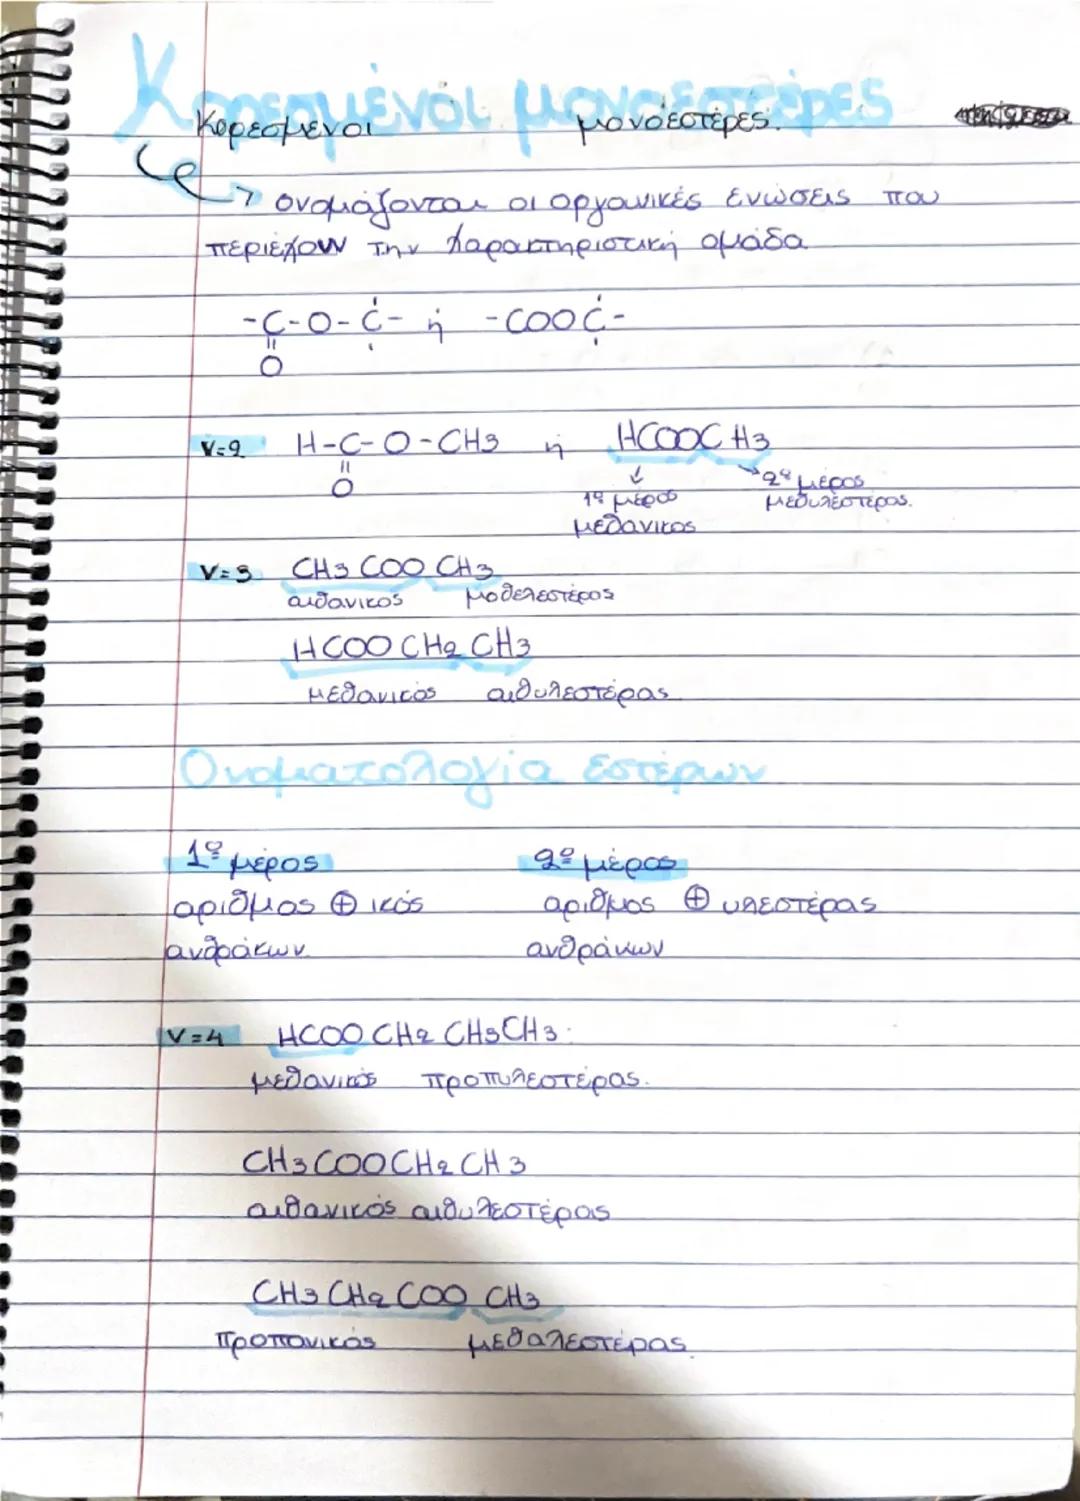 Κορεσμένοι μονοεστέρες
Κορεσμενοι μονοέστέρες.
ονομάζονται οι οργανικές ενώσεις που
περιέχουν την χαρακτηριστική ομάδα
-C-O-C- ή -COOC-
||
O
V=2 H-C-O-CH3 ή HCOOCH3
||
O
1º μέρος 2º μέρος
μεθανικος μεθυλεστέρας.
V=3 CH3COOCH3
αιθανικος μοθελεστέρος
HCOOCH2CH3
μεθανικός αιθυλεστέρας.
Ονοματολογία εστέρων
1º μέρος 2º μέρος
αριθμος ⊕ ικός αριθμος ⊕ υλεστέρας
ανθράκων. ανθράκων
V=4 HCOOCH2CH3CH3.
μεθανικός προπυλεστέρας.
CH3COOCH2CH3
αιθανικός αιθυλεστέρας
CH3CH2COOCH3
προπανικός μεθαλεστέρας.